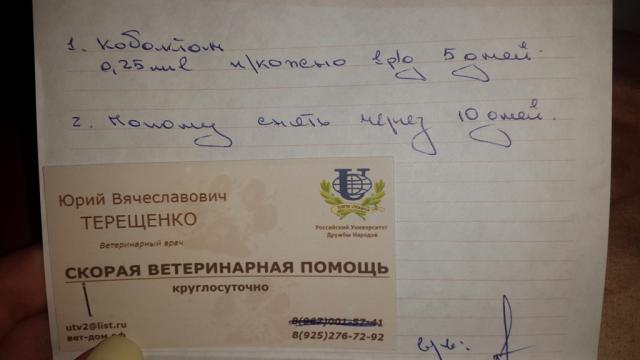 1. Кобактан
0,25 мл п/кожно 1 р/д 5 дней.
2. Попону снять через 10 дней.
Юрий Вячеславович
ТЕРЕЩЕНКО
Ветеринарный врач
Российский Университет
Дружбы Народов
СКОРАЯ ВЕТЕРИНАРНАЯ ПОМОЩЬ
круглосуточно
utv2@list.ru
вет-дом.рф
8(967)001-57-41
8(925)276-72-92
в/в: